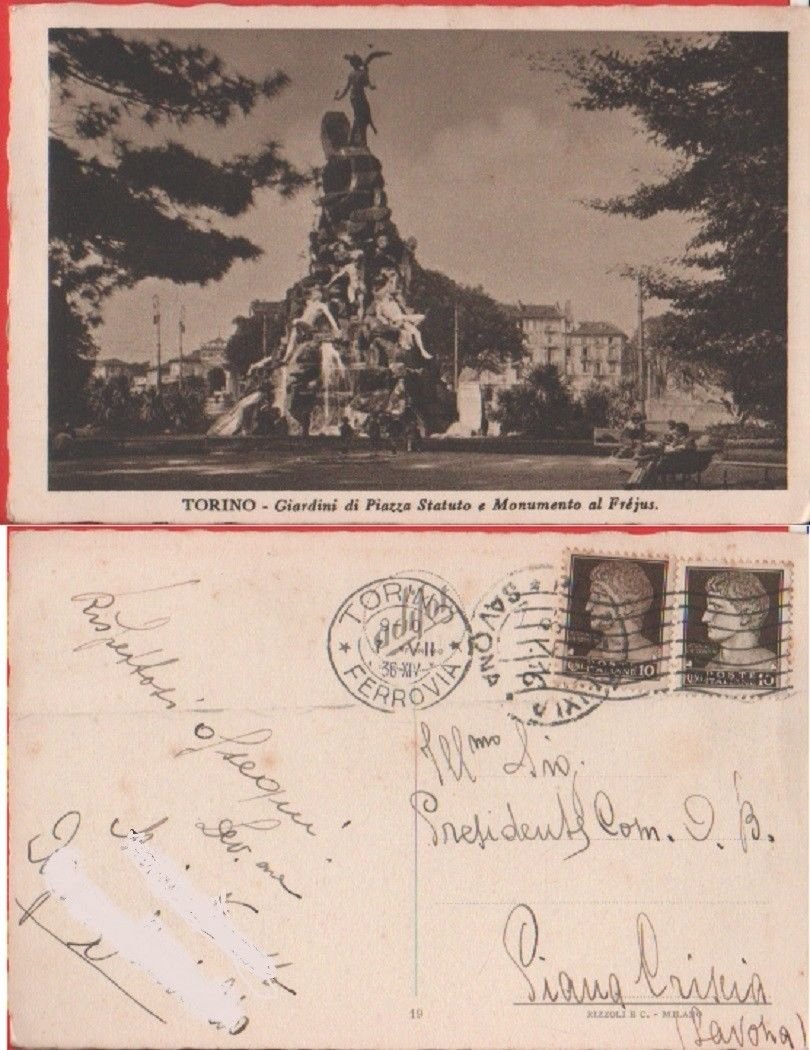 TORINO - Giardini di Piazza Statuto e Monumento al Fréjus.
Rispettosi
ossequi
Dev.ma
TORINO
VII
36-XIV
FERROVIA
SAVONA
POSTE ITALIANE 10
POSTE ITALIANE 10
Ill.mo Sig.
Presidente Com. O. B.
Piana Crixia
(Savona)
19
RIZZOLI E C. - MILANO